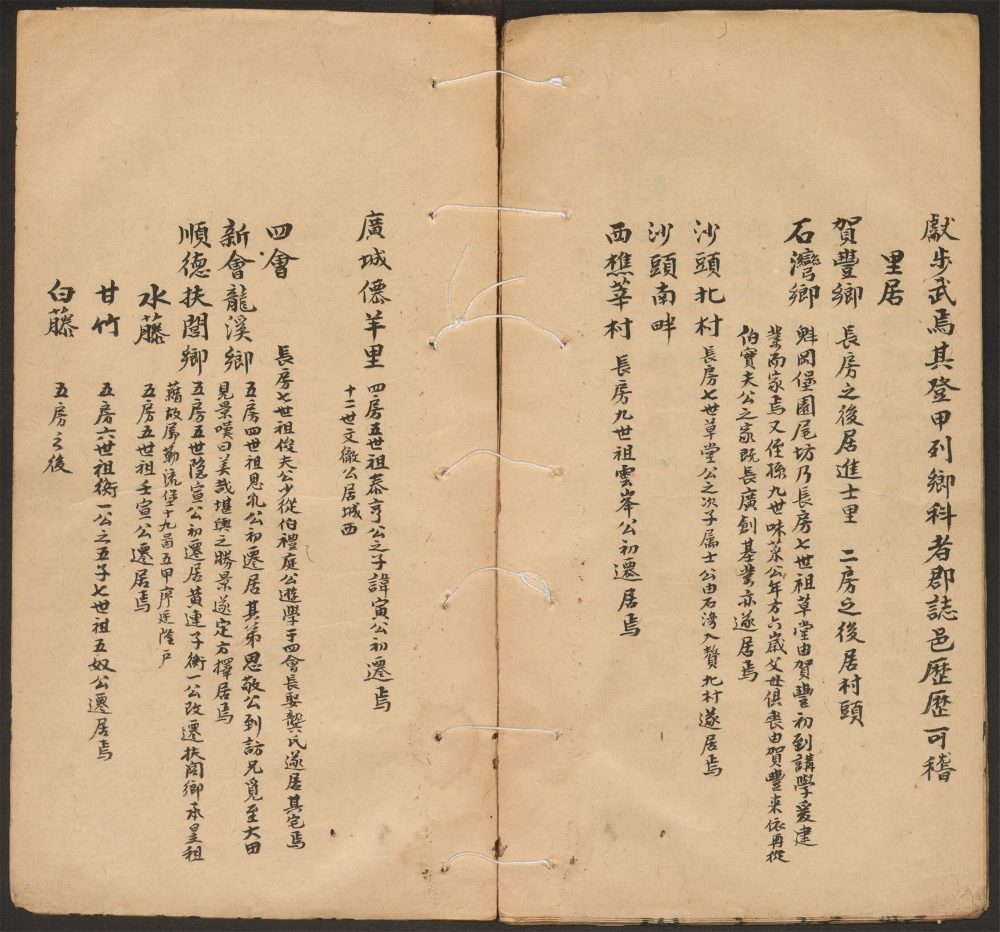 獻步武焉其登甲列鄉科者郡誌邑歷歷可稽
里居
賀豐鄉 長房之後居進士里 二房之後居村頭
石灣鄉 魁岡堡園尾坊乃長房七世祖草堂由賀豐初到講學爰建
業而家焉又侄孫九世味菜公年方六歲父母俱喪由賀豐來依再從
伯寶夫公之家既長廣創基業亦遂居焉
沙頭北村 長房七世草堂公之次子属士公由石湾入贅北村遂居焉
沙頭南畔
西樵莘村 長房九世祖雲峯公初遷居焉
廣城僊羊里 四房五世祖泰亨公之子諱寅公初遷焉
十二世文徽公居城西
四會 長房七世祖俊夫公少從伯禮庭公遊學于四會長娶龔氏遂居其宅焉
新會龍溪鄉 五房四世祖思孔公初遷居其弟思敬公到訪兄覓至大田
見景嘆曰美哉堪輿之勝景遂定方擇居焉
順德扶閭鄉 五房五世隐宣公初遷居黃連子衛一公改遷扶闾鄉承呈祖
籍故属勒流堡十九啚五甲序廷陞戸
水藤 五房五世祖壬宣公遷居焉
甘竹 五房六世祖衛一公之五子七世祖五奴公遷居焉
白藤 五房之後